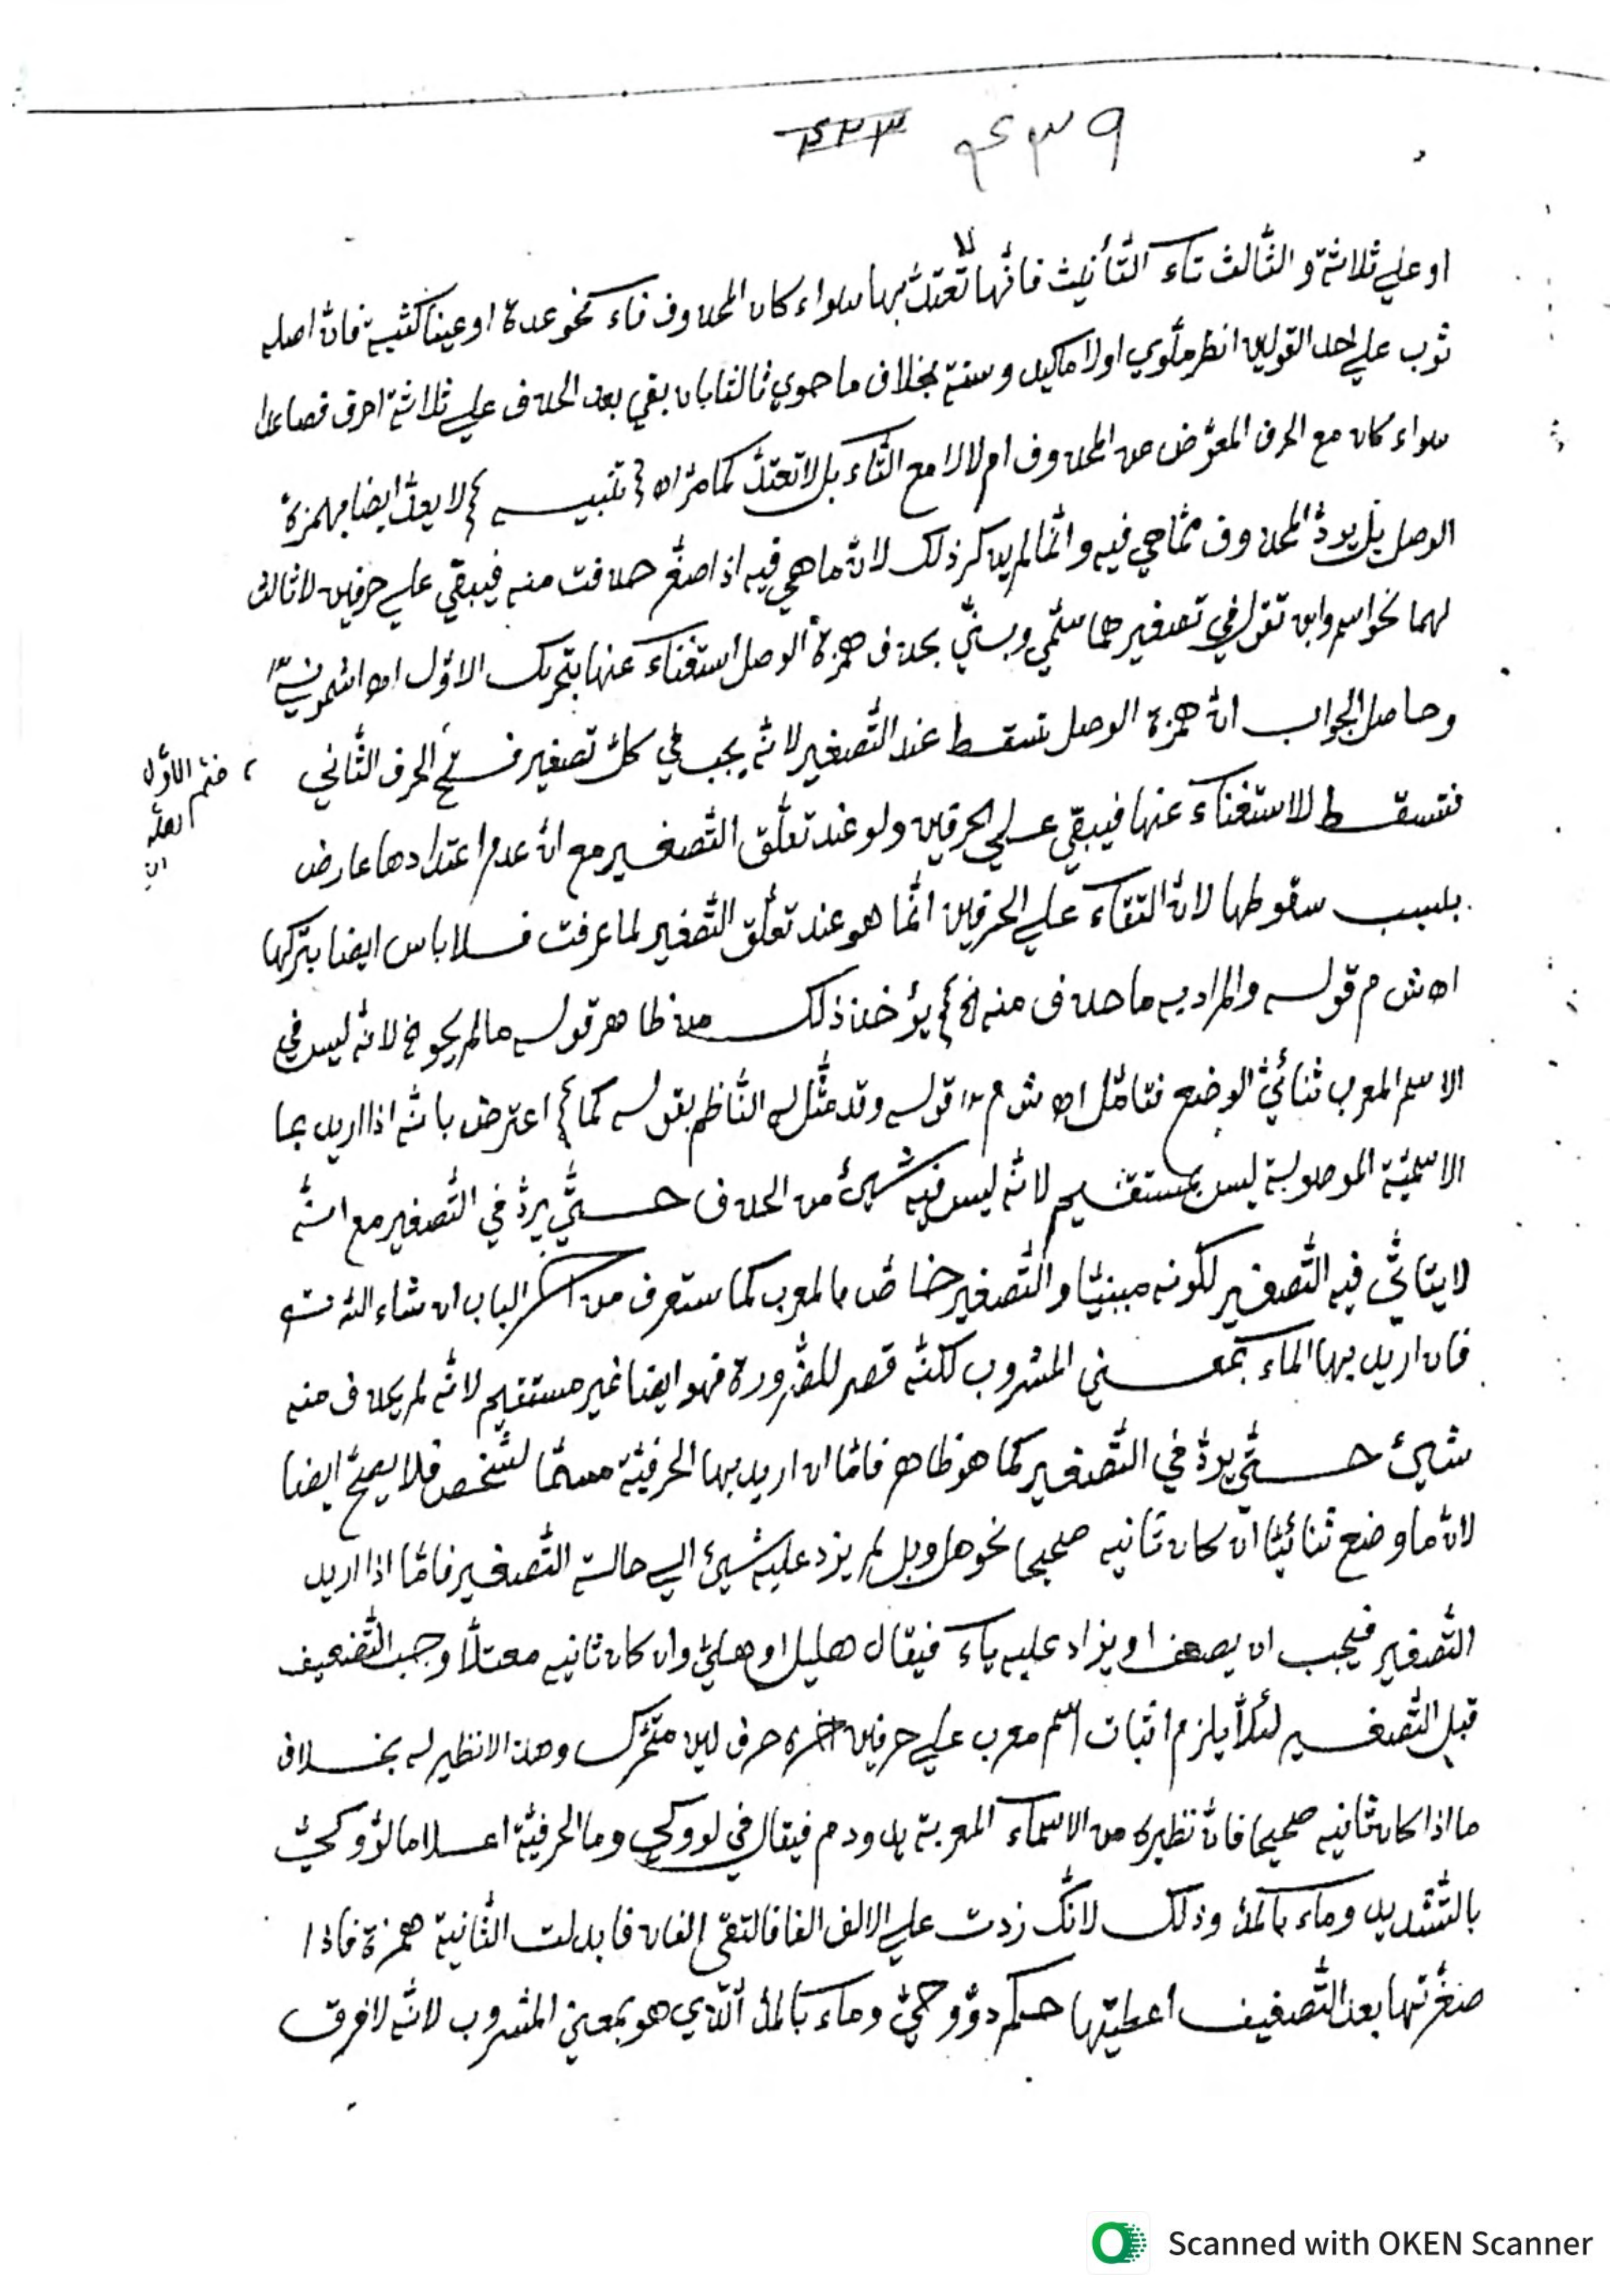 ٤٣٩ ٤٢٣
او علي ثلاثة و الثّالث تاء التّأنيث فانّها لا تّعتدّ بها سواء كان المحذوف فاء نحو عدة او عينا كثبية فانّ اصله
ثوب علي احد القولين انظر ملّوي اولا ماكيد وسنة بخلاف ما حوي ثالثا بان بقي بعد الحذف علي ثلاثة احرف فصاعدا
سواء كان مع الحرف المعوّض من المحذوف ام لا لا مع التّاء بل لا تعتدّ كما مرّ اه تنبيه لا يعدّ ايضا بهمزة
الوصل بل يردّ المحذوف ممّا هي فيه و انّما لم يذكر ذلك لانّ ما هي فيه اذا صغّر حذفت منه فيبقي علي حرفين لا ثالث
لهما نحو اسم وابن تقول في تصغيرهما سمّي وبنيّ بحذف همزة الوصل استغناء عنها بتحريك الاوّل اه اشموني
وحاصل الجواب انّ همزة الوصل تسقط عند التّصغير لانّه يجب في كلّ تصغير فتح الحرف الثّاني
ضمّ الاوّل
فتسقط للاستغناء عنها فيبقي علي الحرفين ولو عند تعلّق التّصغير مع انّ عدم اعتدادها عارض
بسبب سقوطها لانّ التقاء علي الحرفين انّما هو عند تعلّق التّصغير لما عرفت فلا باس ايضا بتركها
اه ش م قوله والمراد به ما حذف منه الخ يؤخذ ذلك من ظاهر قوله ما لم يحو الخ لانّه ليس في
الاسم المعرب ثنائيّ الوضع فتامّل اه ش م قوله وقد مثّل له النّاظم بقوله كما اعترض بانّه اذا اريد بما
الاسميّة الموصولية ليس بمستقيم لانّه ليس فيه شيئ من الحذف حتّي يردّ في التّصغير مع انّه
لا يتاتّي فيه التّصغير لكونه مبنيّا والتّصغير خاصّ بالمعرب كما ستعرف من آخر الباب ان شاء اللّه
فان اريد بها الماء بمعني المشروب لكنّه قصر للضّرورة فهو ايضا غير مستقيم لانّه لم يحذف منه
شيئ حتّي يردّ في التّصغير كما هو ظاهر فامّا ان اريد بها الحرفيّة مسمّا لشّخص فلا يصحّ ايضا
لانّ ما وضع ثنائيّا ان كان ثانيه صحيحا نحو هل وبل لم يزد عليه شيئ الي حالة التّصغير فامّا اذا اريد
التّصغير فيجب ان يضعف او يزاد عليه ياء فيقال هليل او هليّ وان كان ثانيه معتلّا وجب التّضعيف
قبل التّصغير لئلّا يلزم اثبات اسم معرب علي حرفين اخره حرف لين متحّرك وهذا لا نظير له بخلاف
ما اذا كان ثانيه صحيحا فانّ نظيره من الاسماء المعربة يد ودم فيقال في لو وكي وما الحرفيّة اعلاما لوّ وكيّ
بالتّشديد وماء بالمدّ وذلك لانّك زدت علي الالف الفا فالتقي الفان فابدلت الثّانية همزة فاذا
صغّرتها بعد التّضعيف اعطيتها حكم دوّ وحيّ وماء بالمدّ الّذي هو بمعني المشروب لانّه لا فرق
Scanned with OKEN Scanner